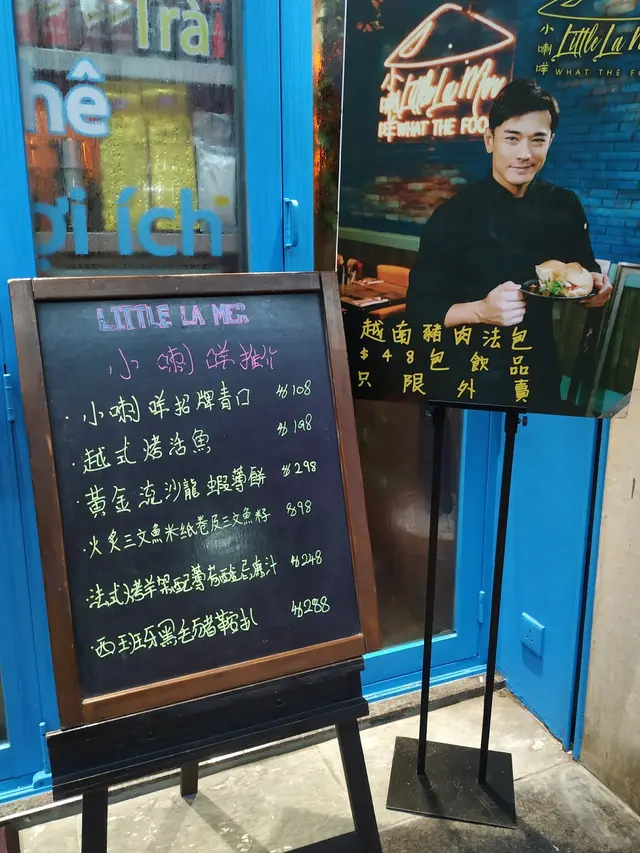 Trà
hê
ợi ích
LITTLE LA MER
小喇咩推介
· 小喇咩招牌青口 $108
· 越式烤活魚 $198
· 黃金流沙龍蝦薄餅 $298
· 火炙三文魚米紙卷及三文魚籽 $98
· 法式烤羊架配薄荷酸忌廉汁 $248
· 西班牙黑毛豬鞍扒 $288
小喇咩 Little La Mer
WHAT THE FOO
小喇咩 Little La M
WHAT THE F
越南豬肉法包
$48包飲品
只限外賣